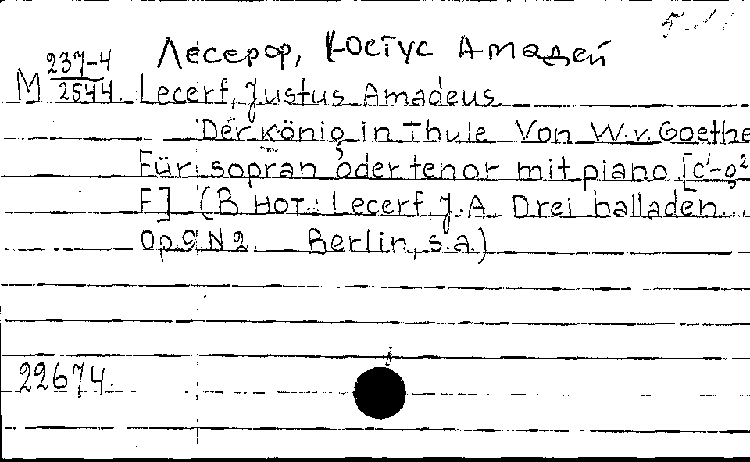 Лесерф, Юстус Амадей
M 237-4
2544 Lecerf, Justus Amadeus
Der König in Thule Von W. v. Goethe
Für sopran oder tenor mit piano [c¹-g²
F] (В нот.: Lecerf J. A. Drei balladen...
Op. 9 N 2. Berlin, s. a.)
22674.